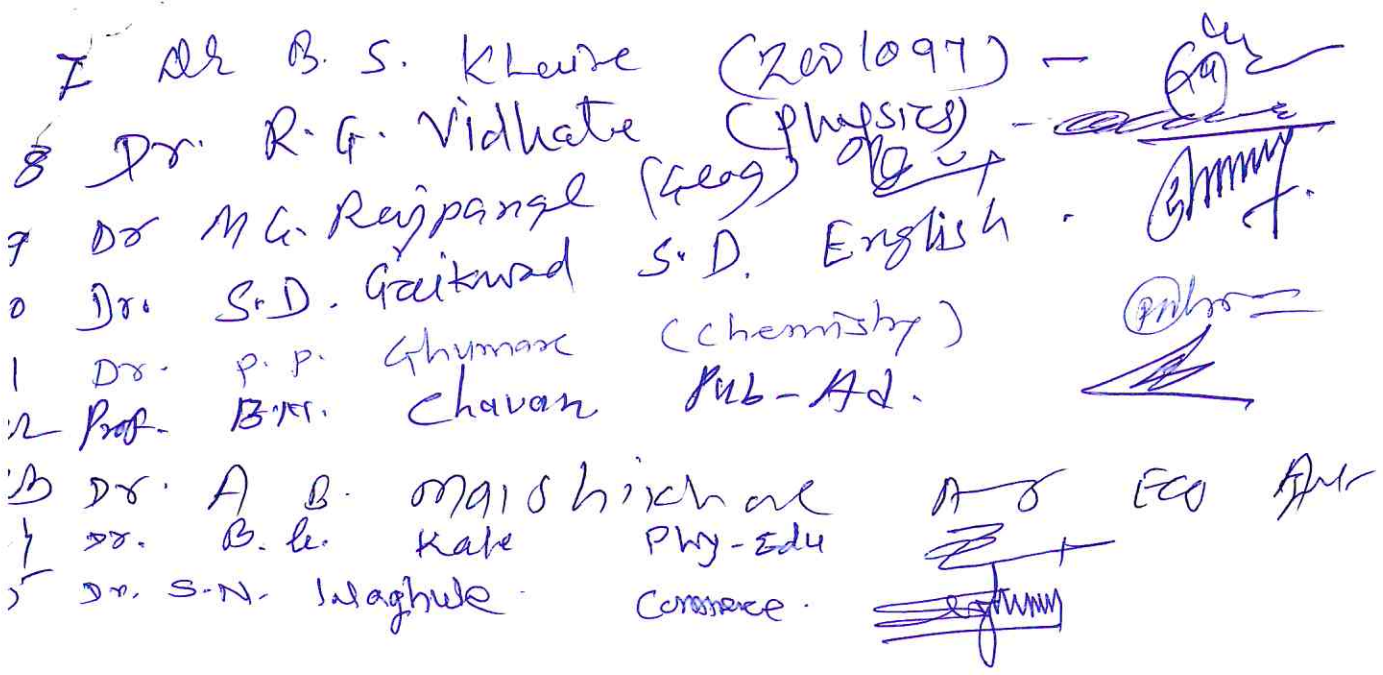 7 Dr B. S. Khaire (Zoology) -
8 Dr. R. G. Vidhate (Physics) -
9 Dr M G. Rajpange (Geog)
0 Dr. S.D. Gaikwad S.D. English.
1 Dr. P. P. Ghumare (Chemistry)
12 Prof. B.M. Chavan Pub-Ad.
13 Dr. A B. Eco
Dr. B. Kale Phy-Edu
5 Dr. S.N. Waghule Commerce.